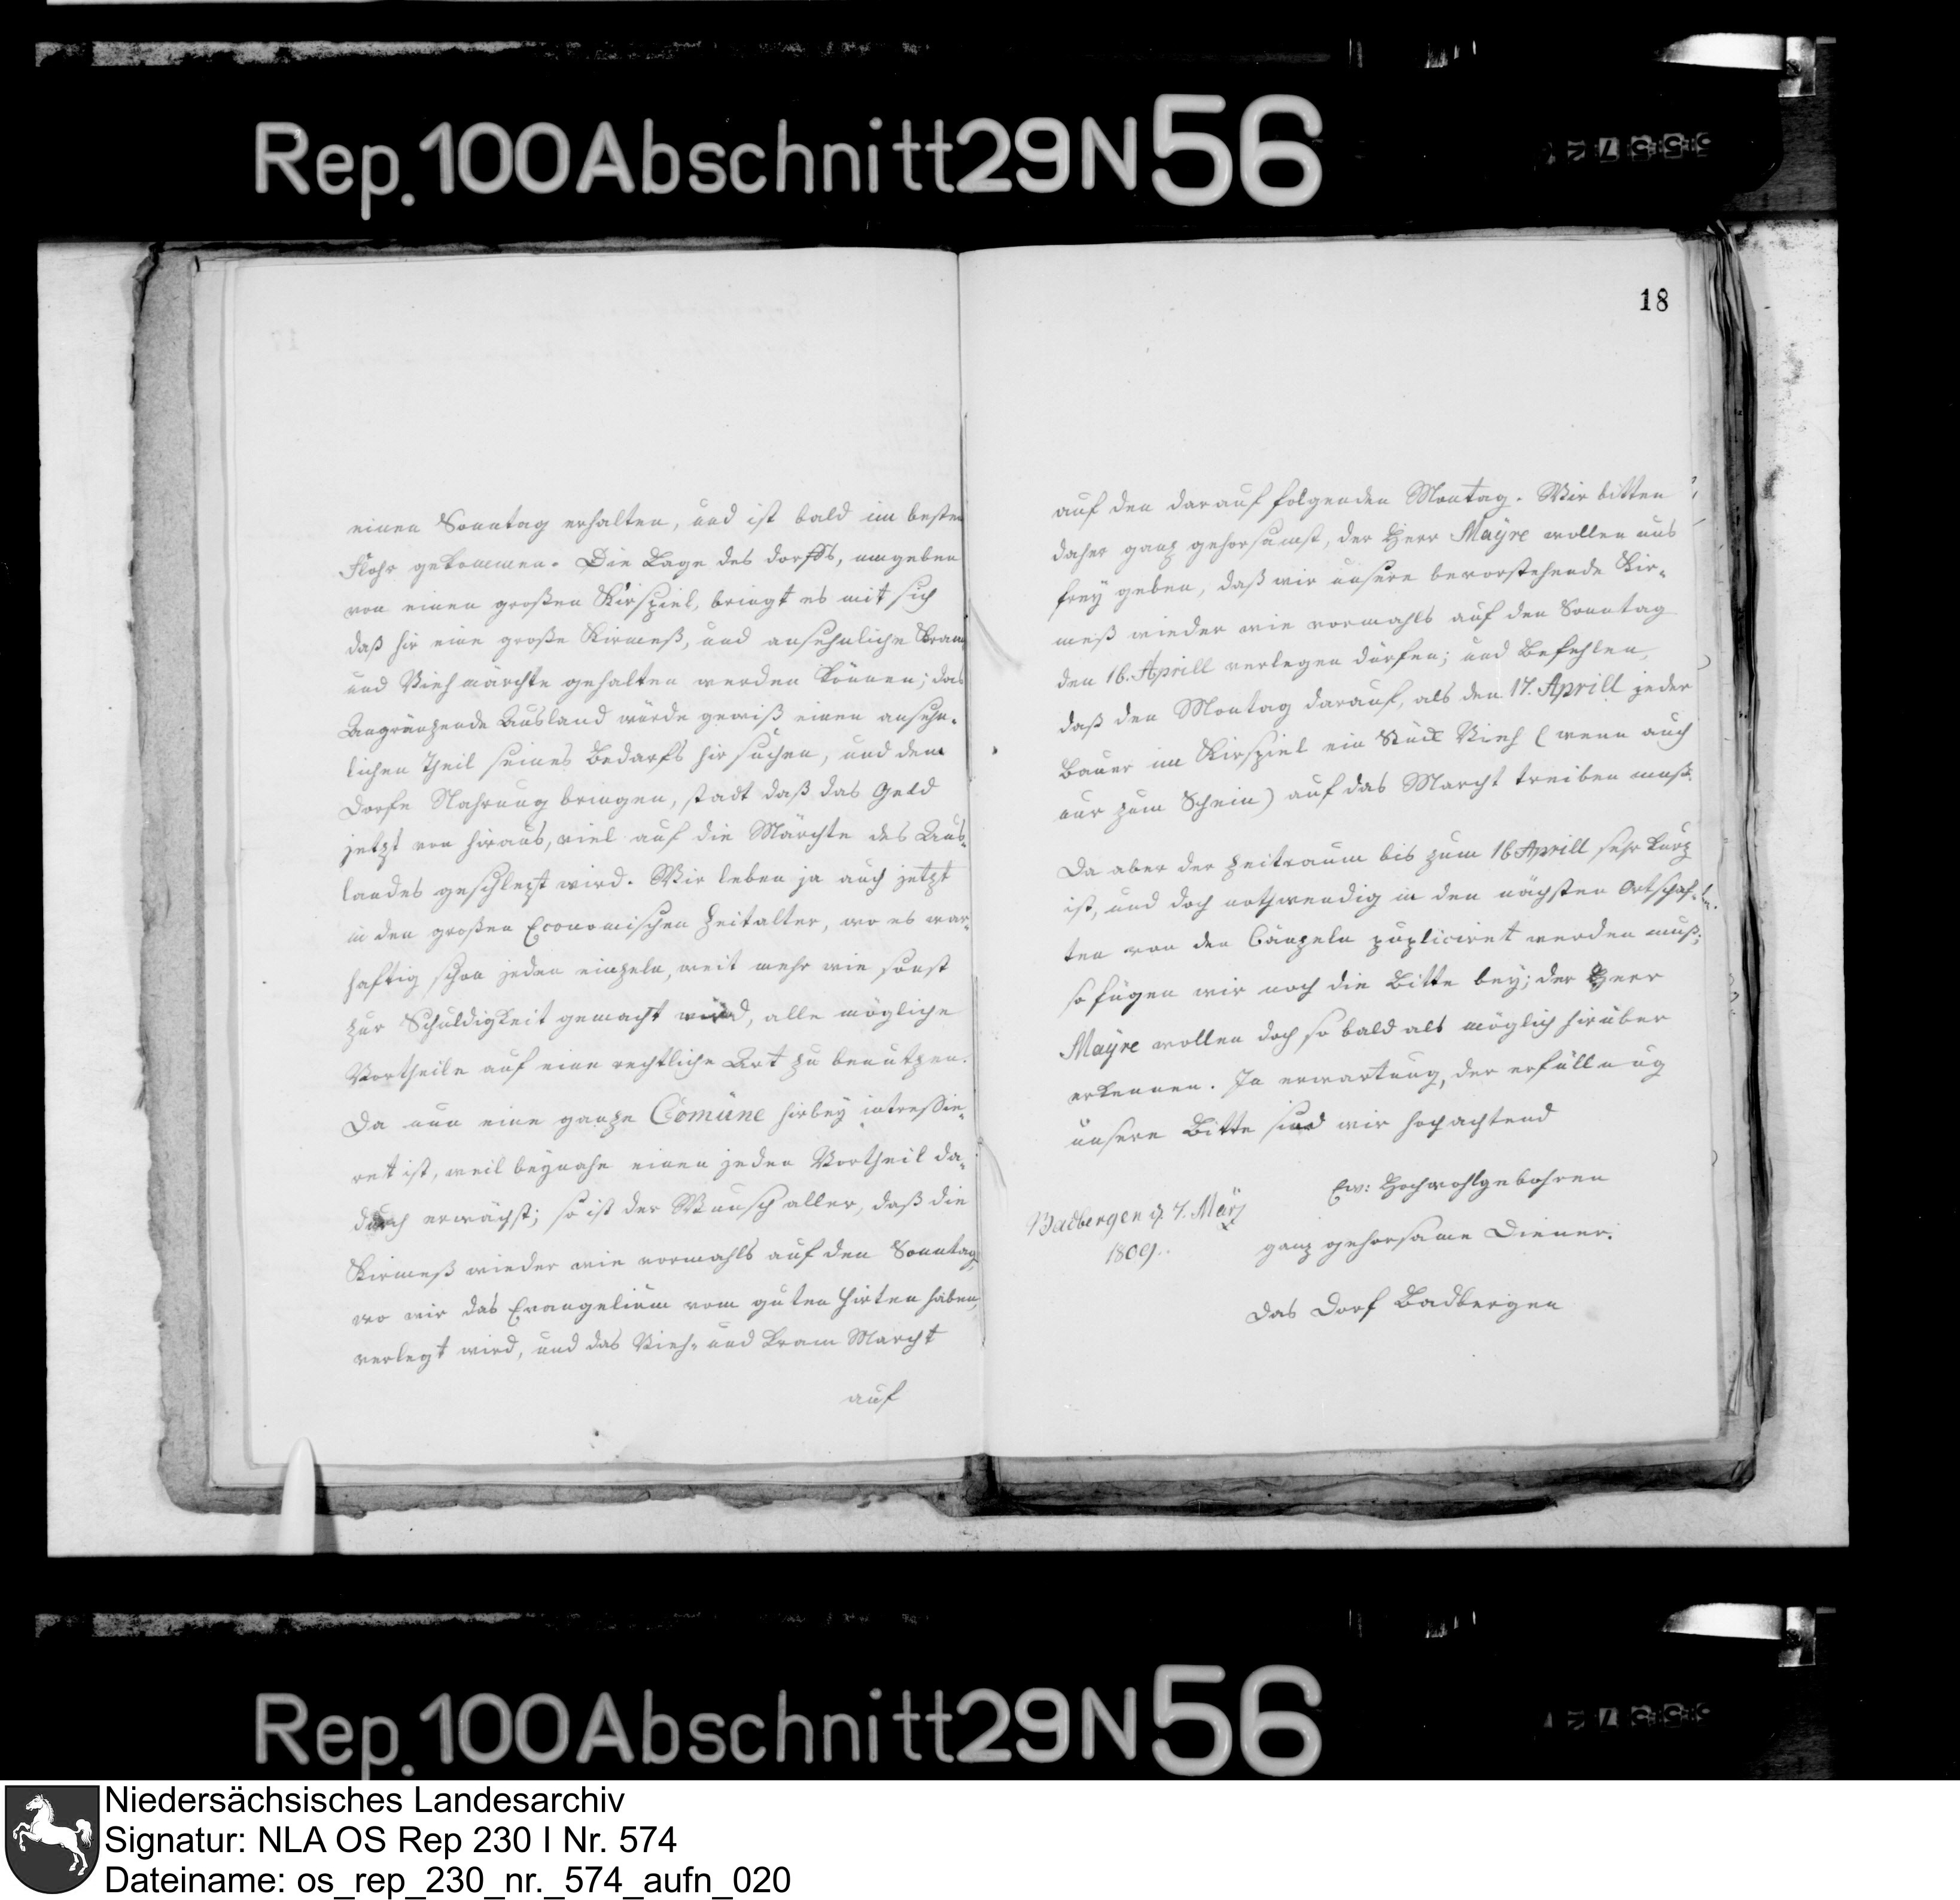 Rep.100Abschnitt29N56
18
einen Sonntag erhalten, und ist bald im besten
Flohr gekommen. Die Lage des dorffs, umgeben
von einen großen Kirspiel, bringt es mit sich
daß hir eine große Kirmeß, und ansehnliche Kram
und Vieh märchte gehalten werden können; das
Angränzende Ausland würde gewiß einen ansehn-
lichen Theil seines Bedarfs hir suchen, und dem
Dorfe Nahrung bringen, stadt daß das Geld
jetzt von hiraus, viel auf die Märchte des Aus-
landes geschlept wird. Wir leben ja auch jetzt
in den großen Economischen Zeitalter, wo es war-
haftig schon jeden einzeln, weit mehr wie sonst
zur Schuldigkeit gemacht wird, alle mögliche
Vortheile auf eine rechtliche Art zu benutzen.
Da nun eine ganze Comüne hirbey intressie-
ret ist, weil beynahe einen jeden Vortheil da-
durch erwächst; so ist der Wunsch aller, daß die
Kirmeß wieder wie vormahls auf den Sonntag,
wo wir das Evangelium vom guten Hirten haben,
verlegt wird, und das Vieh- und Kram Marcht
auf
auf den darauf folgenden Montag. Wir bitten
daher ganz gehorsamst, der Herr Mayre wollen uns
frey geben, daß wir unsere bevorstehende Kir-
meß wieder wie vormahls auf den Sonntag
den 16. Aprill verlegen dürfen; und Befehlen,
daß den Montag darauf, als den 17. Aprill jeder
Bauer im Kirspiel ein Stück Vieh (wenn auch
nur zum Schein) auf das Marcht treiben muß.
Da aber der Zeitraum bis zum 16 Aprill sehr kurz
ist, und doch nothwendig in den nächsten Ortschaf-
ten von den Canzeln pupliciret werden muß;
so fügen wir noch die Bitte bey; der Herr
Mayre wollen doch so bald als möglich hirüber
erkennen. In erwartung, der erfüllung
unsere Bitte sind wir hochachtend
Ew: Hochwohlgebohren
Badbergen d. 7. März
ganz gehorsame Diener.
1809.
Das Dorf Badbergen
Rep.100Abschnitt29N56
Niedersächsisches Landesarchiv
Signatur: NLA OS Rep 230 I Nr. 574
Dateiname: os_rep_230_nr._574_aufn_020